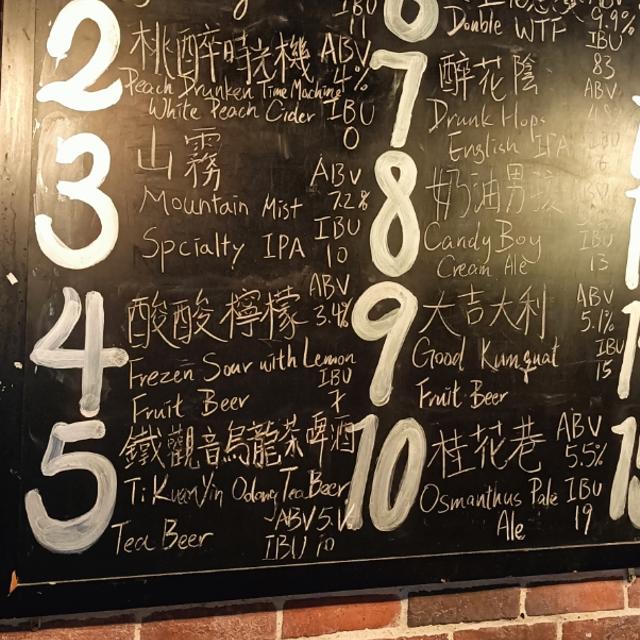 IBU
11
2
桃醉時光機
ABV
4%
Peach Drunken Time Machine
White Peach Cider
IBU
0
3
山霧
ABV
7.2%
Mountain Mist
Specialty IPA
IBU
10
4
酸酸檸檬
ABV
3.4%
Frezen Sour with Lemon
Fruit Beer
IBU
7
5
鐵觀音烏龍茶啤酒
Ti KuanYin Oolong Tea Beer
ABV 5.
Tea Beer
IBU 10
6
9.9%
Double WTF
IBU
83
7
醉花陰
ABV
Drunk Hops
English IPA
8
奶油男孩
Candy Boy
Cream Ale
IBU
13
9
大吉大利
ABV
5.1%
Good Kumquat
Fruit Beer
IBU
15
10
桂花巷
ABV
5.5%
Osmanthus Pale
Ale
IBU
19